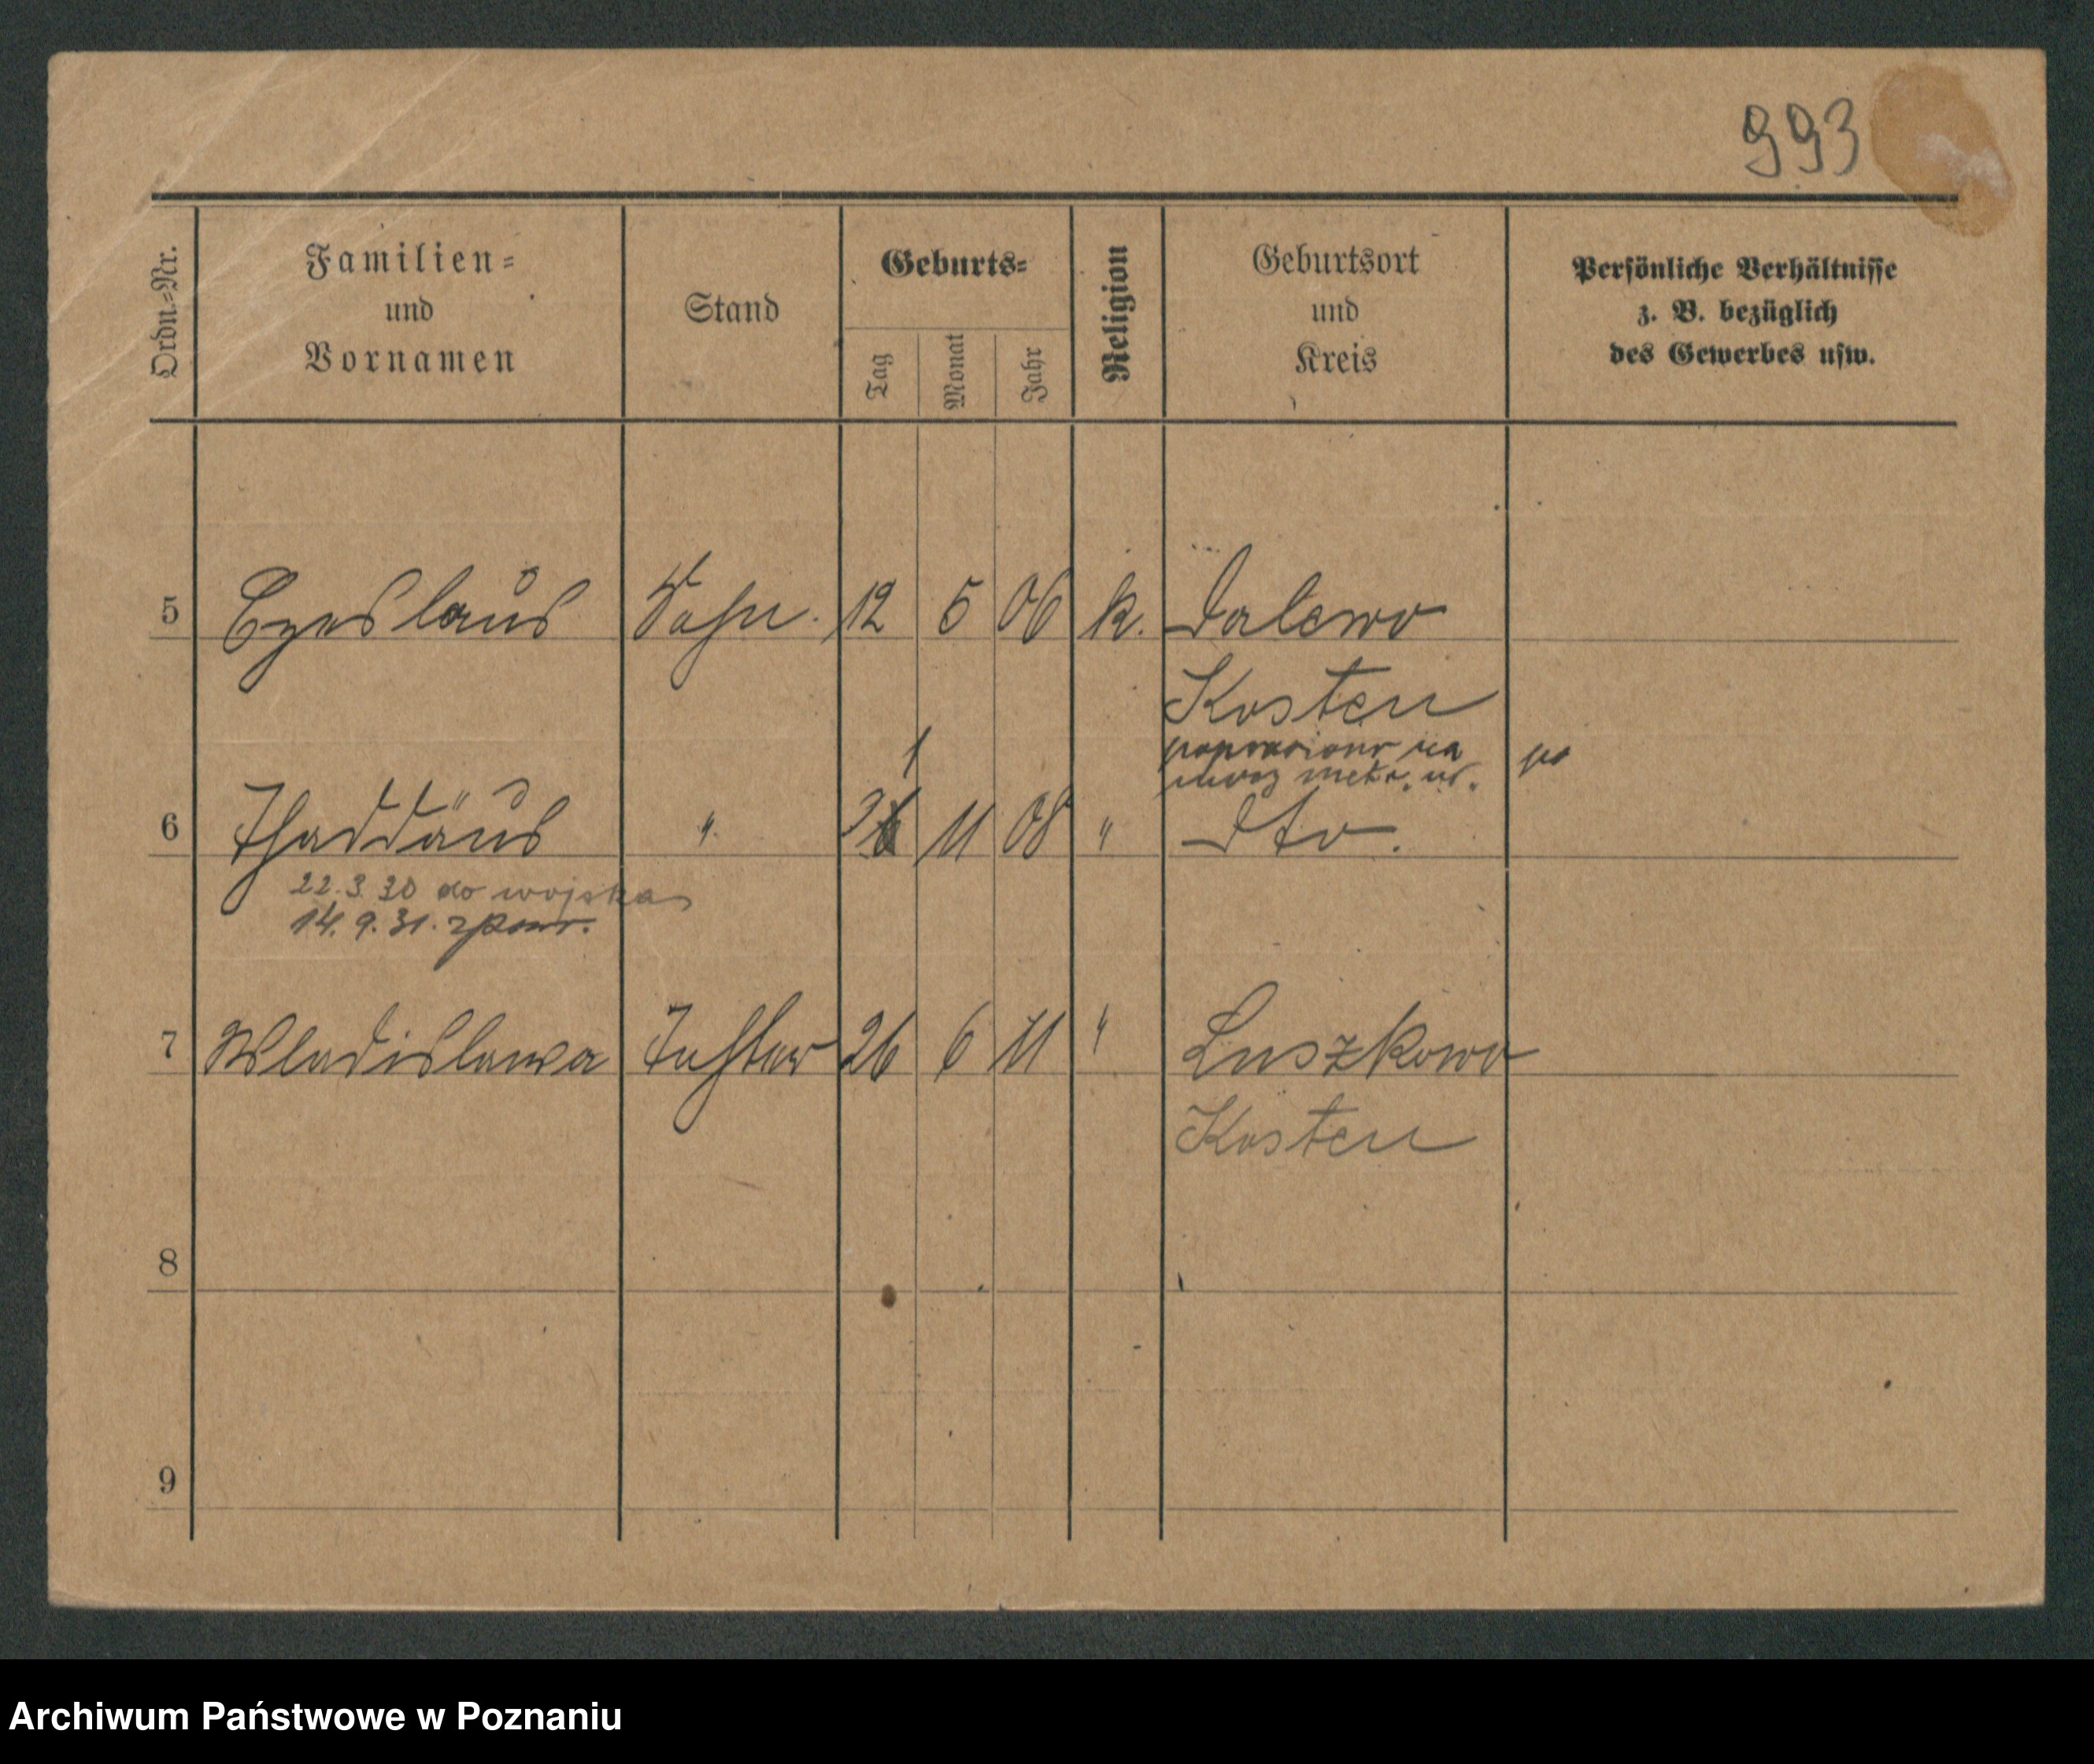 993
Ordn.-Nr.
Familien-
und
Vornamen
Stand
Geburts-
Tag
Monat
Jahr
Religion
Geburtsort
und
Kreis
Persönliche Verhältnisse
z. B. bezüglich
des Gewerbes usw.
5 Czeslaus Sohn. 12 5 06 k. Dalewo
Kosten
poprawiono na
mocy metr. ur.
1
6 Thaddäus " 3 11 08 " Dto.
22.3.30 do wojska
14.9.31. z powr.
7 Wladislawa Tochter 26 6 11 " Luszkowo
Kosten
8
9
Archiwum Państwowe w Poznaniu